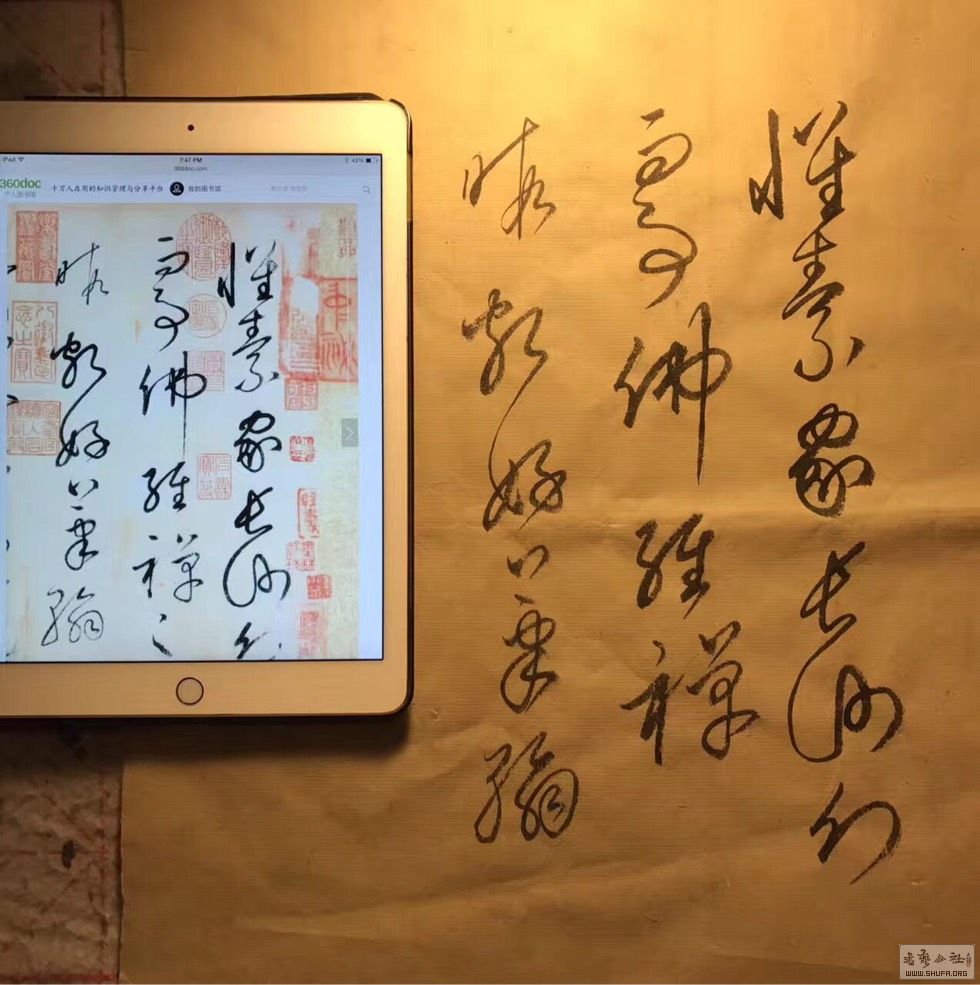 iPad 7:47 PM 43%
360doc.com
360doc
个人图书馆
千万人在用的知识管理与分享平台 我的图书馆
懷素家長沙幼
而事佛經禪之
暇頗好筆翰
懷素家長沙幼
而事佛經禪
暇頗好筆翰
書藝公社
WWW.SHUFA.ORG